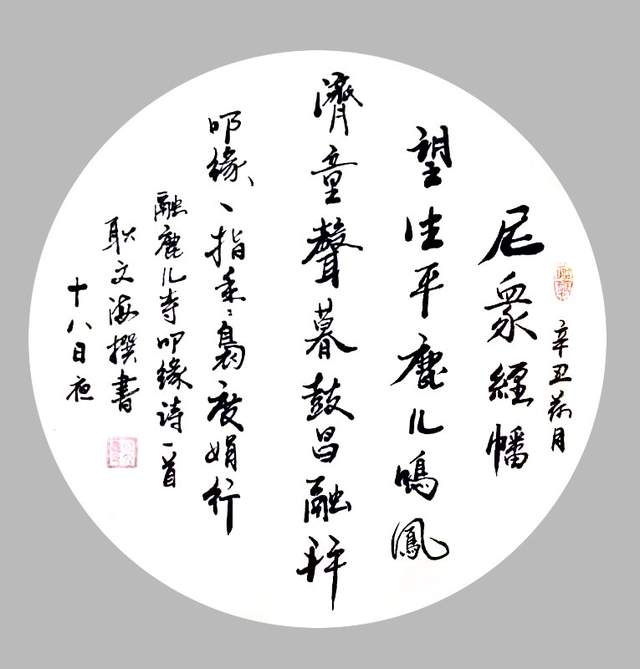 辛丑荷月
尼眾經幡
望生平鹿儿鳴鳳
濟童聲暮鼓昌融祥
叩緣指度娟行
融鹿儿寺叩緣诗一首
耿文海撰書
十八日夜